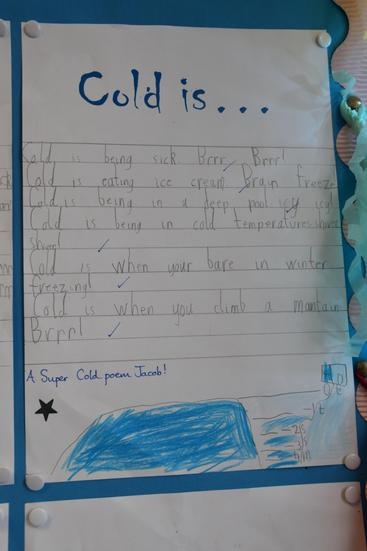 Cold is...
Cold is being sick. Brrr, Brrr!
Cold is eating ice cream. Brain freeze
Cold is being in a deep pool icy icy!
Cold is being in cold temperatures shiver
shiver!
Cold is when your bare in winter
freezing!
Cold is when you climb a mantain
Brrr!
A Super Cold poem Jacob!